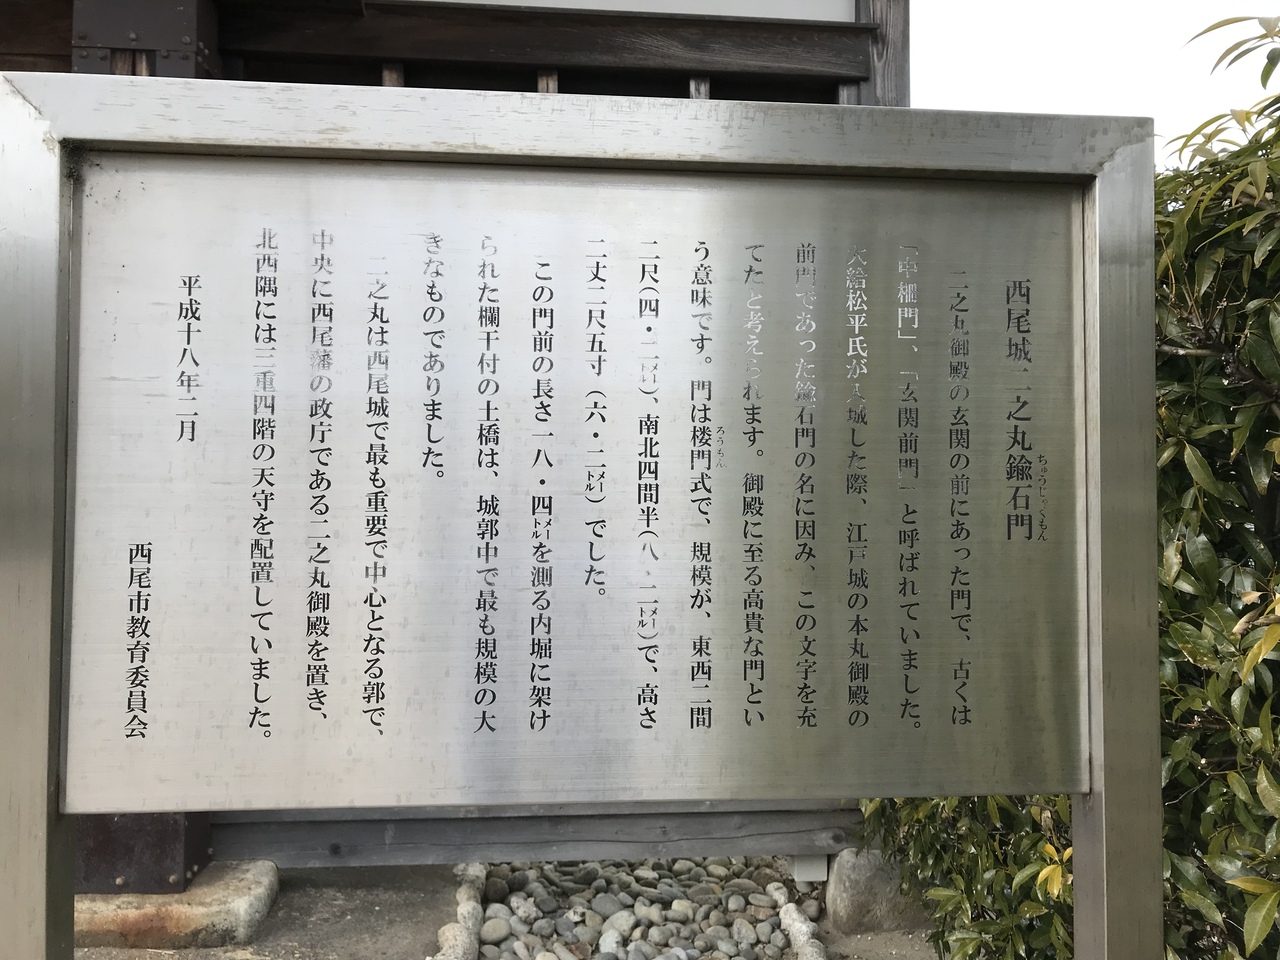 西尾城二之丸鍮石門
ちゅうじゃくもん
二之丸御殿の玄関の前にあった門で、古くは
「中柵門」、「玄関前門」と呼ばれていました。
大給松平氏が入城した際、江戸城の本丸御殿の
前門であった鍮石門の名に因み、この文字を充
てたと考えられます。御殿に至る高貴な門とい
う意味です。門は楼門式で、規模が、東西二間
ろうもん
二尺(四・二メートル)、南北四間半(八・二メートル)で、高さ
二丈二尺五寸(六・二メートル)でした。
この門前の長さ一八・四メートルを測る内堀に架け
られた欄干付の土橋は、城郭中で最も規模の大
きなものでありました。
二之丸は西尾城で最も重要で中心となる郭で、
中央に西尾藩の政庁である二之丸御殿を置き、
北西隅には三重四階の天守を配置していました。
平成十八年二月
西尾市教育委員会